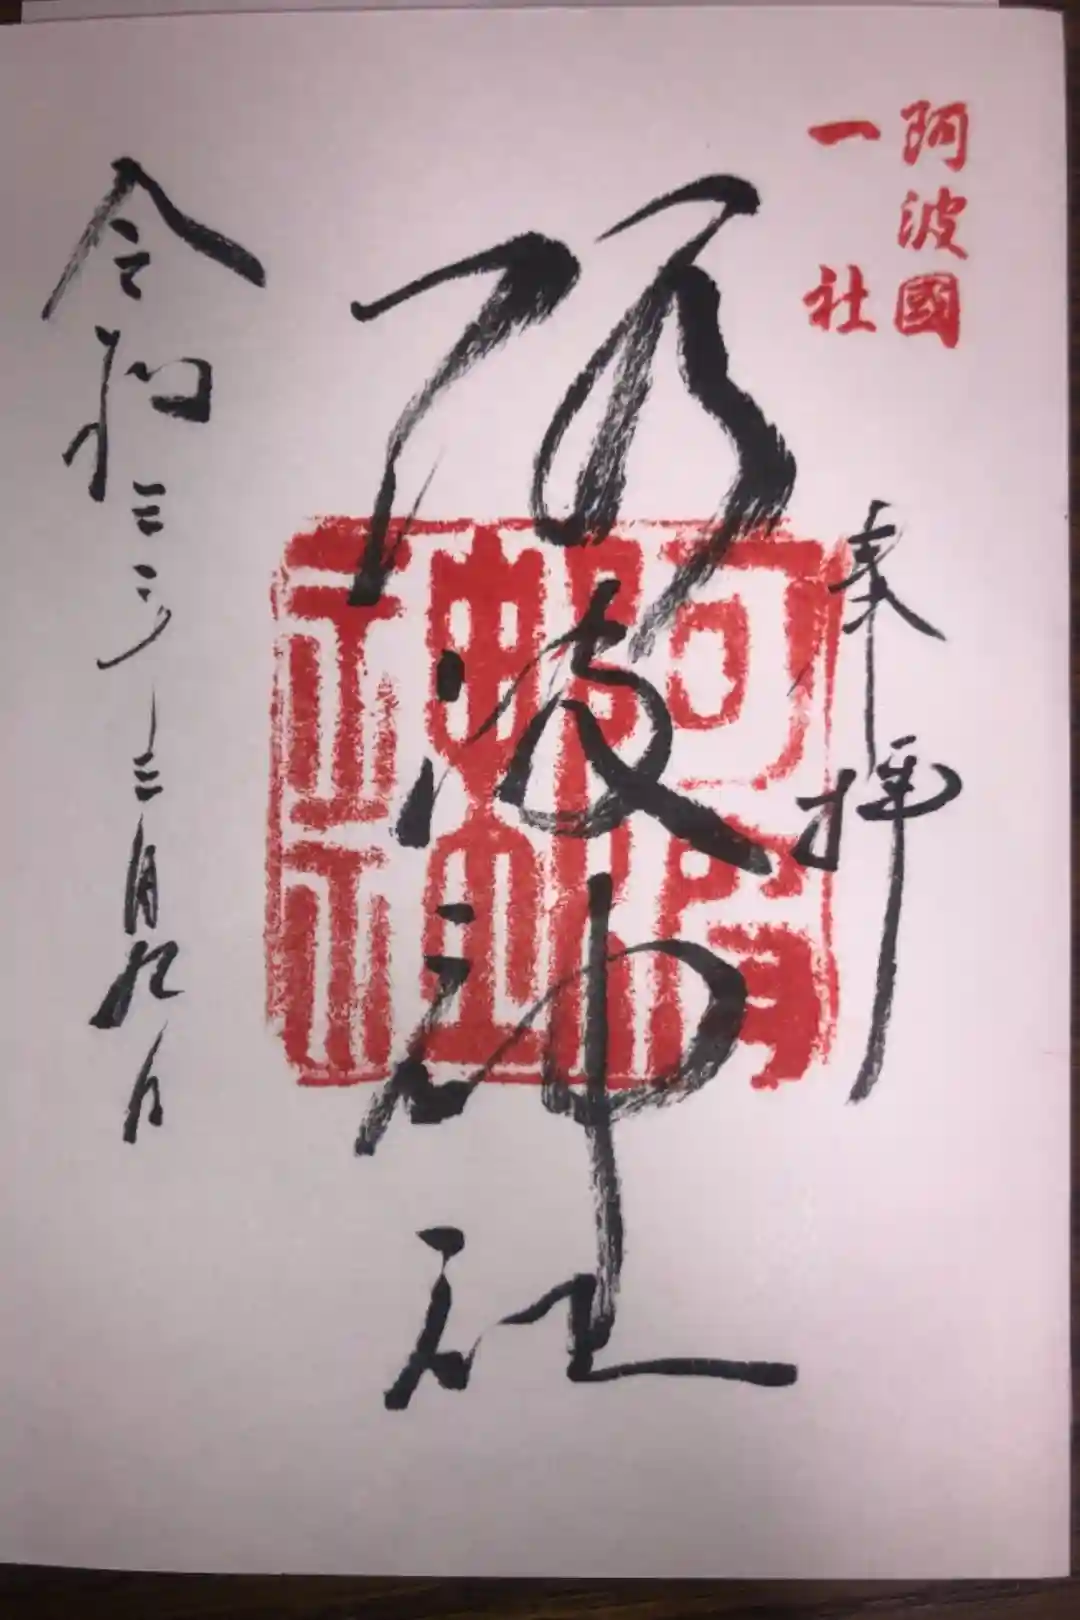 阿波國
一社
奉拝
阿波神社
阿波
神社
令和三年三月九日